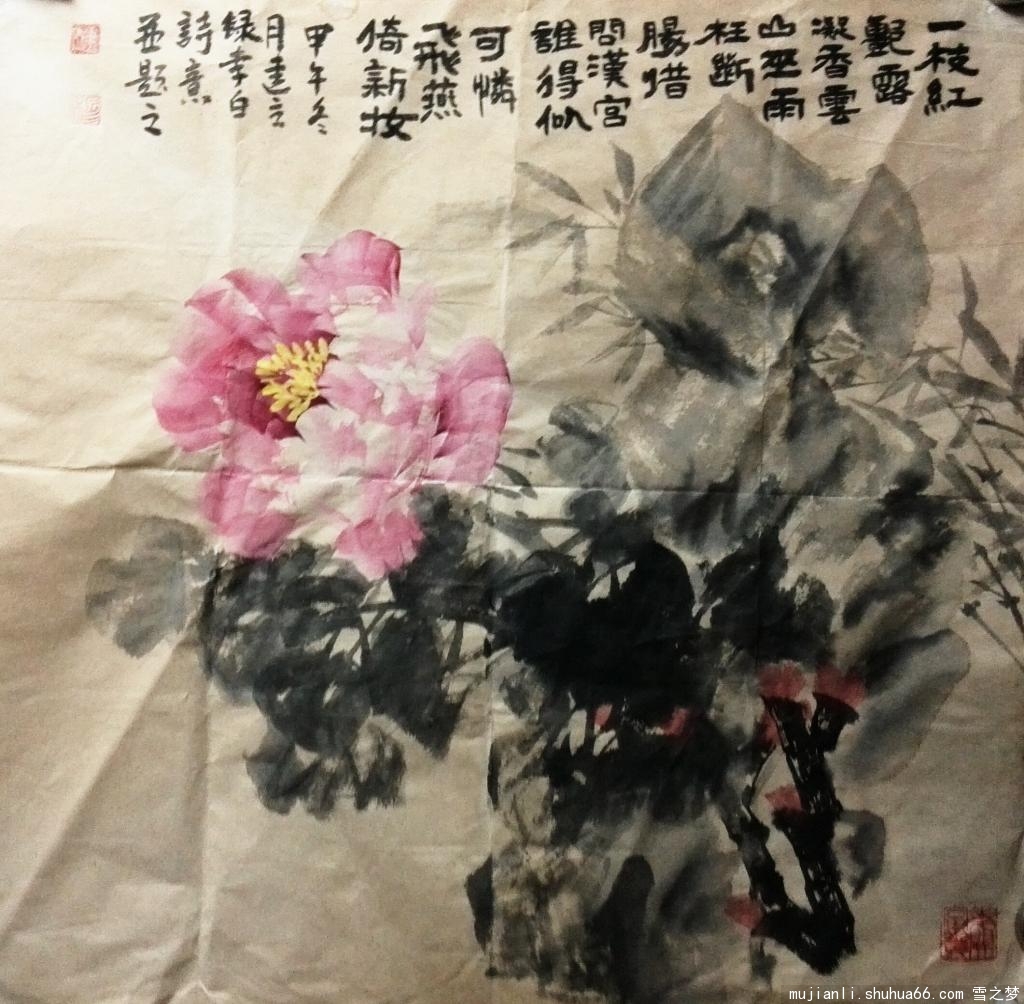 一枝紅
艷露
凝香雲
山巫雨
枉斷
腸借
問漢宮
誰得似
可憐
飛燕
倚新妝
甲午冬
月建立
録李白
詩意
並題之
mujianli.shuhua66.com 雪之梦